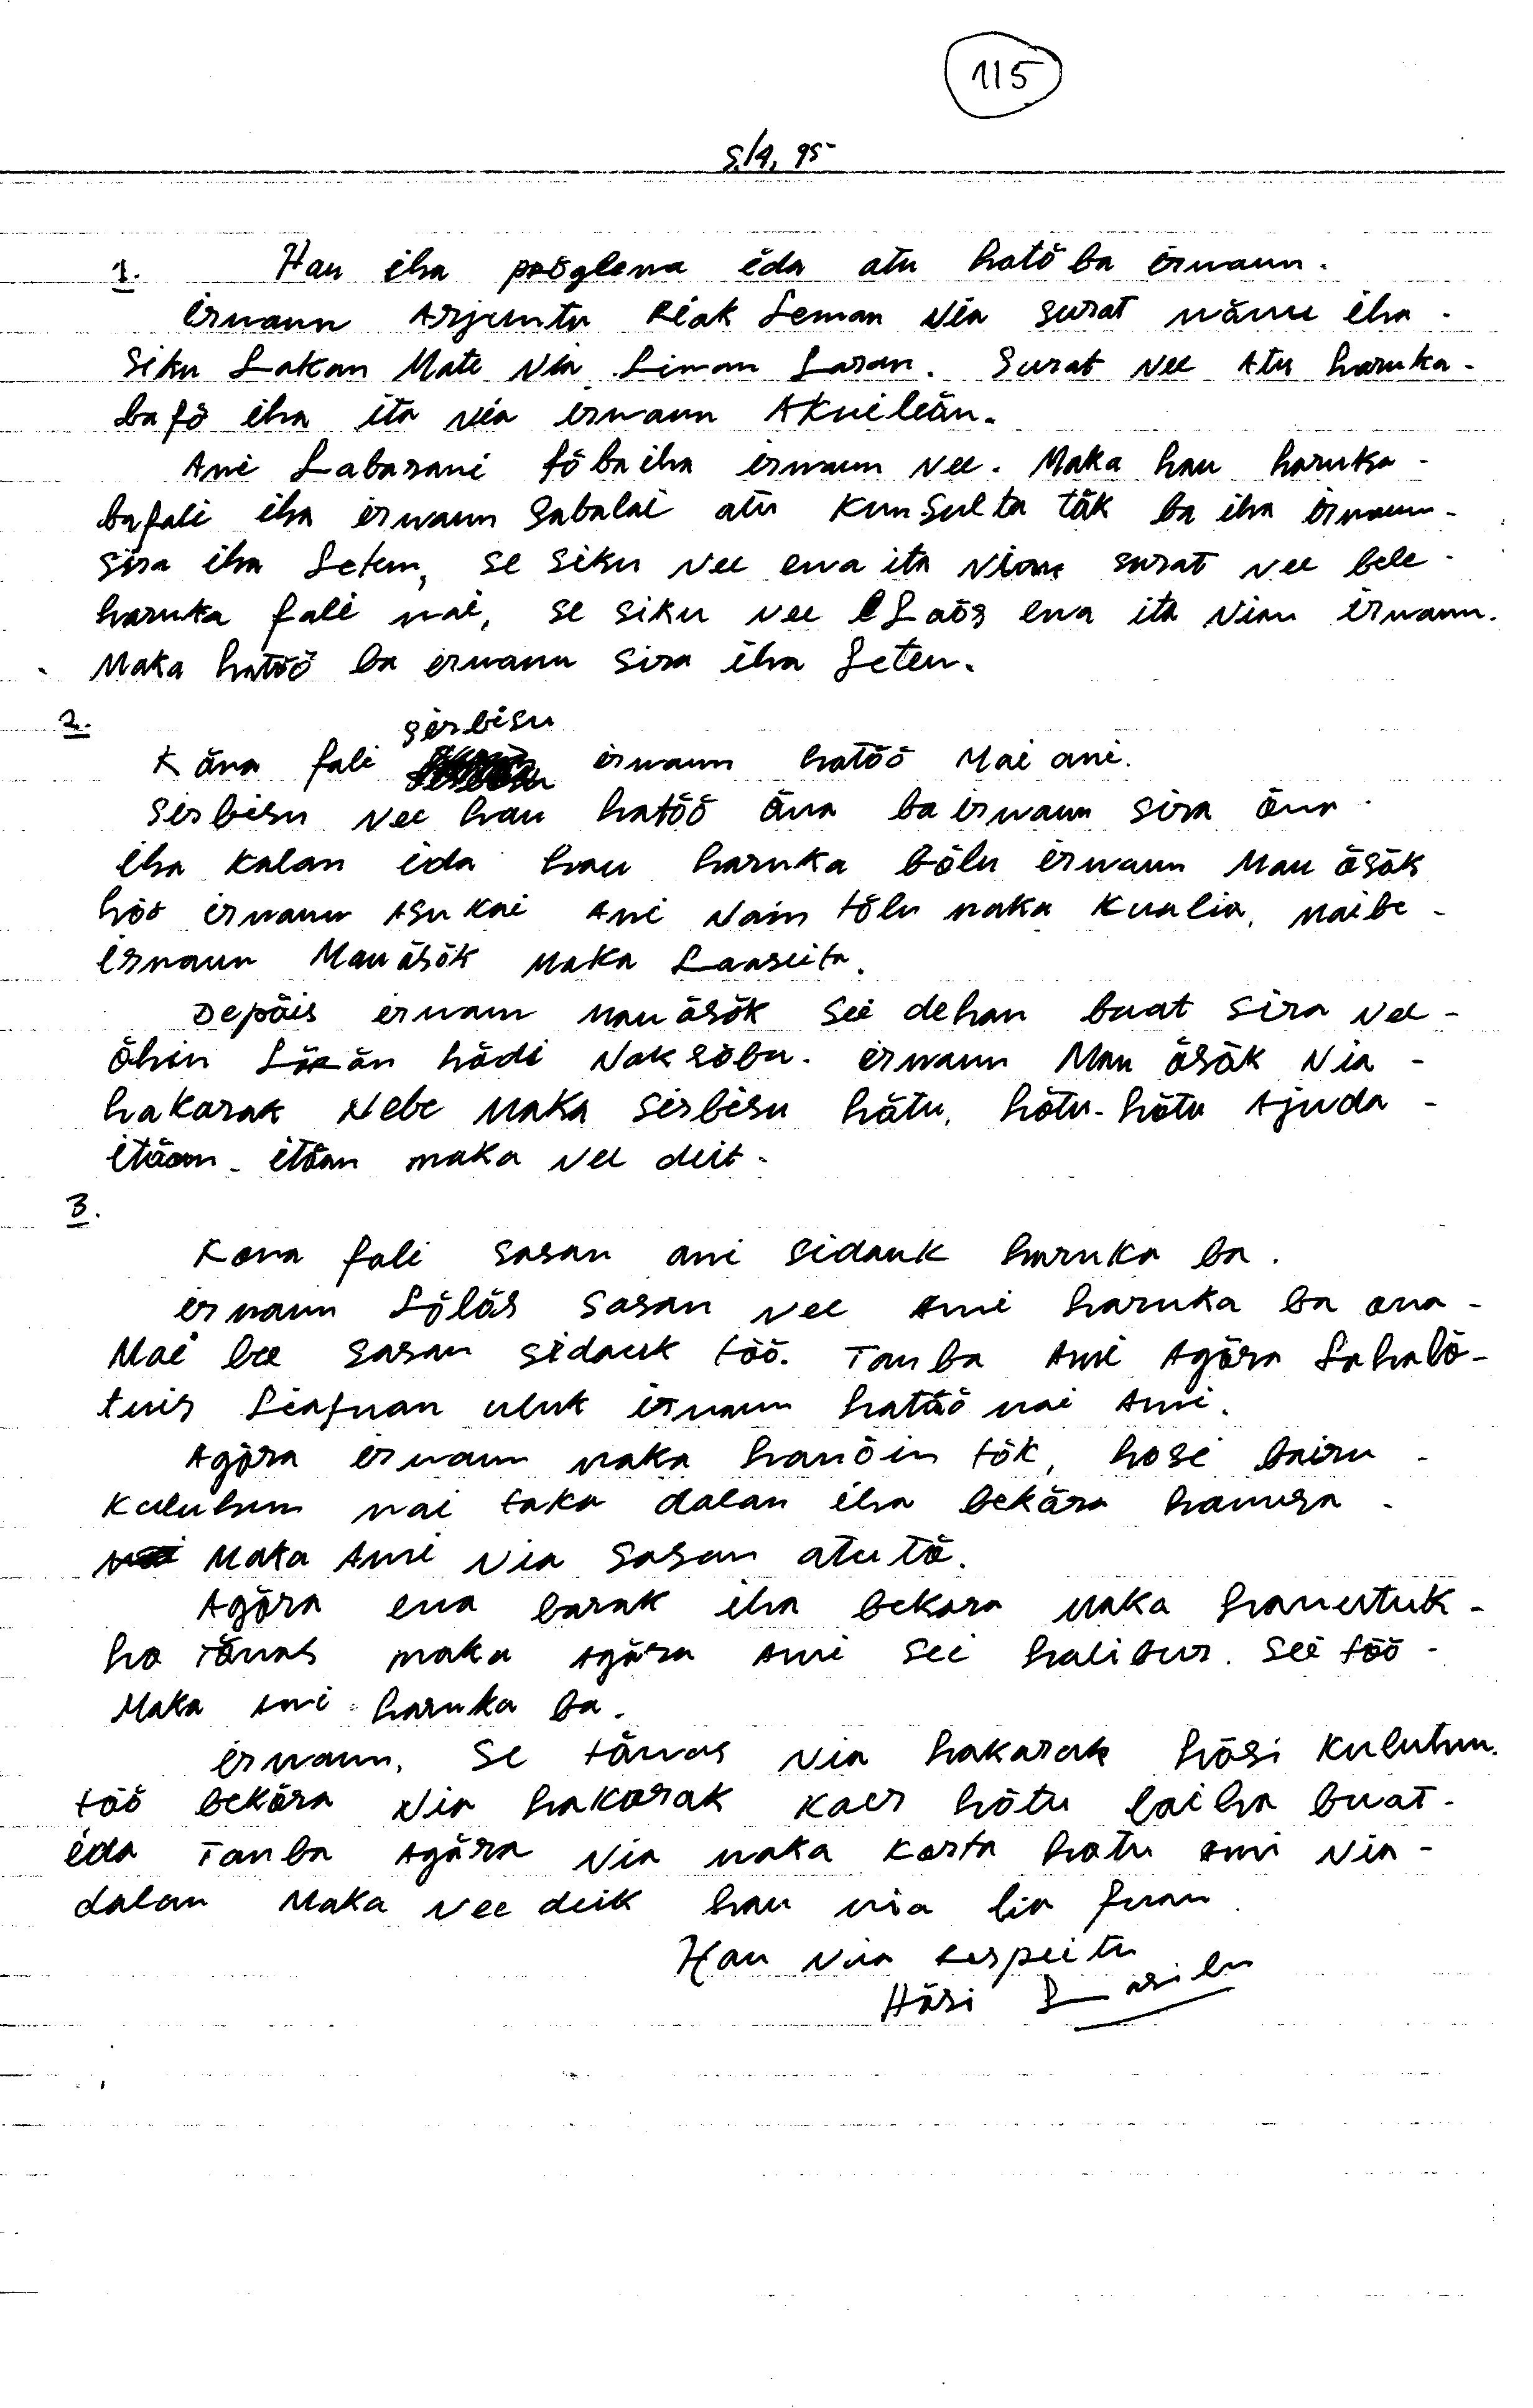 115
5/4, 95
1. Hau iha pröglema ida atu hatö ba irmaun.
irmaun Arjentu Kiak Leman Nia surat näme iha -
siku Lakan Mate Nia Liman Laran. Surat Nee Atu haruka -
ba fö iha ita Nia irmaun Akuileän.
Ami Labarani föba iha irmaun Nee. Maka hau haruka -
bafali iha irmaun Sabalai atu Kunsulta täk ba iha irmaun -
Sira iha Leten, se siku Nee ema ita Nian surat Nee bele -
haruka fali mai, se siku Nee Laös ema ita Nian irmaun.
Maka hatöö ba irmaun Sira iha Leten.
2.
Köna fali serbisu irmaun hatöö Mai ami.
Serbisu Nee hau hatöö öna ba irmaun Sira öna -
iha Kalan ida hau haruka bölu irmaun Mau ösök
höö irmaun Asukai Ami Nain tölu maka Kualia, maibe -
irmaun Mauösök Maka Laaseita.
Depöis irmaun Mauösök sei dehan buat sira Nee -
öhin Lör än hödi Naksöbu. irmaun Mau ösök Nia -
hakarak Nebe Maka Serbisu hötu, hötu-hötu Ajuda -
itäan - itöan maka Nee deit -
3.
Kona fali sasan ami sidauk haruka ba.
irmaun Lölös sasan Nee Ami haruka ba ona -
Mai bee sasan sidauk töö. Tanba Ami Agöra Lahalö -
tuir Liafuan uluk irmaun hatöö mai Ami.
Agöra irmaun maka hanöin tök, hosi bairu -
Kuluhun mai taka dalan iha beköra hamusa -
Maka Ami Nia sasan atu tö.
Agöra ema barak iha bekora maka hamutuk -
ho Tömas maka Agöra Ami sei halibur. Sei töö -
Maka Ami haruka ba.
irmaun, Se tömas Nia hakarak hösi Kuluhun.
töö beköra Nia hakarak kaer hötu laiha buat -
ida Tanba Agöra Nia maka Korta hotu ami Nia -
dalan Maka Nee deik hau nia lia fuan
Hau Nia respeitu
Hösi Lasilu